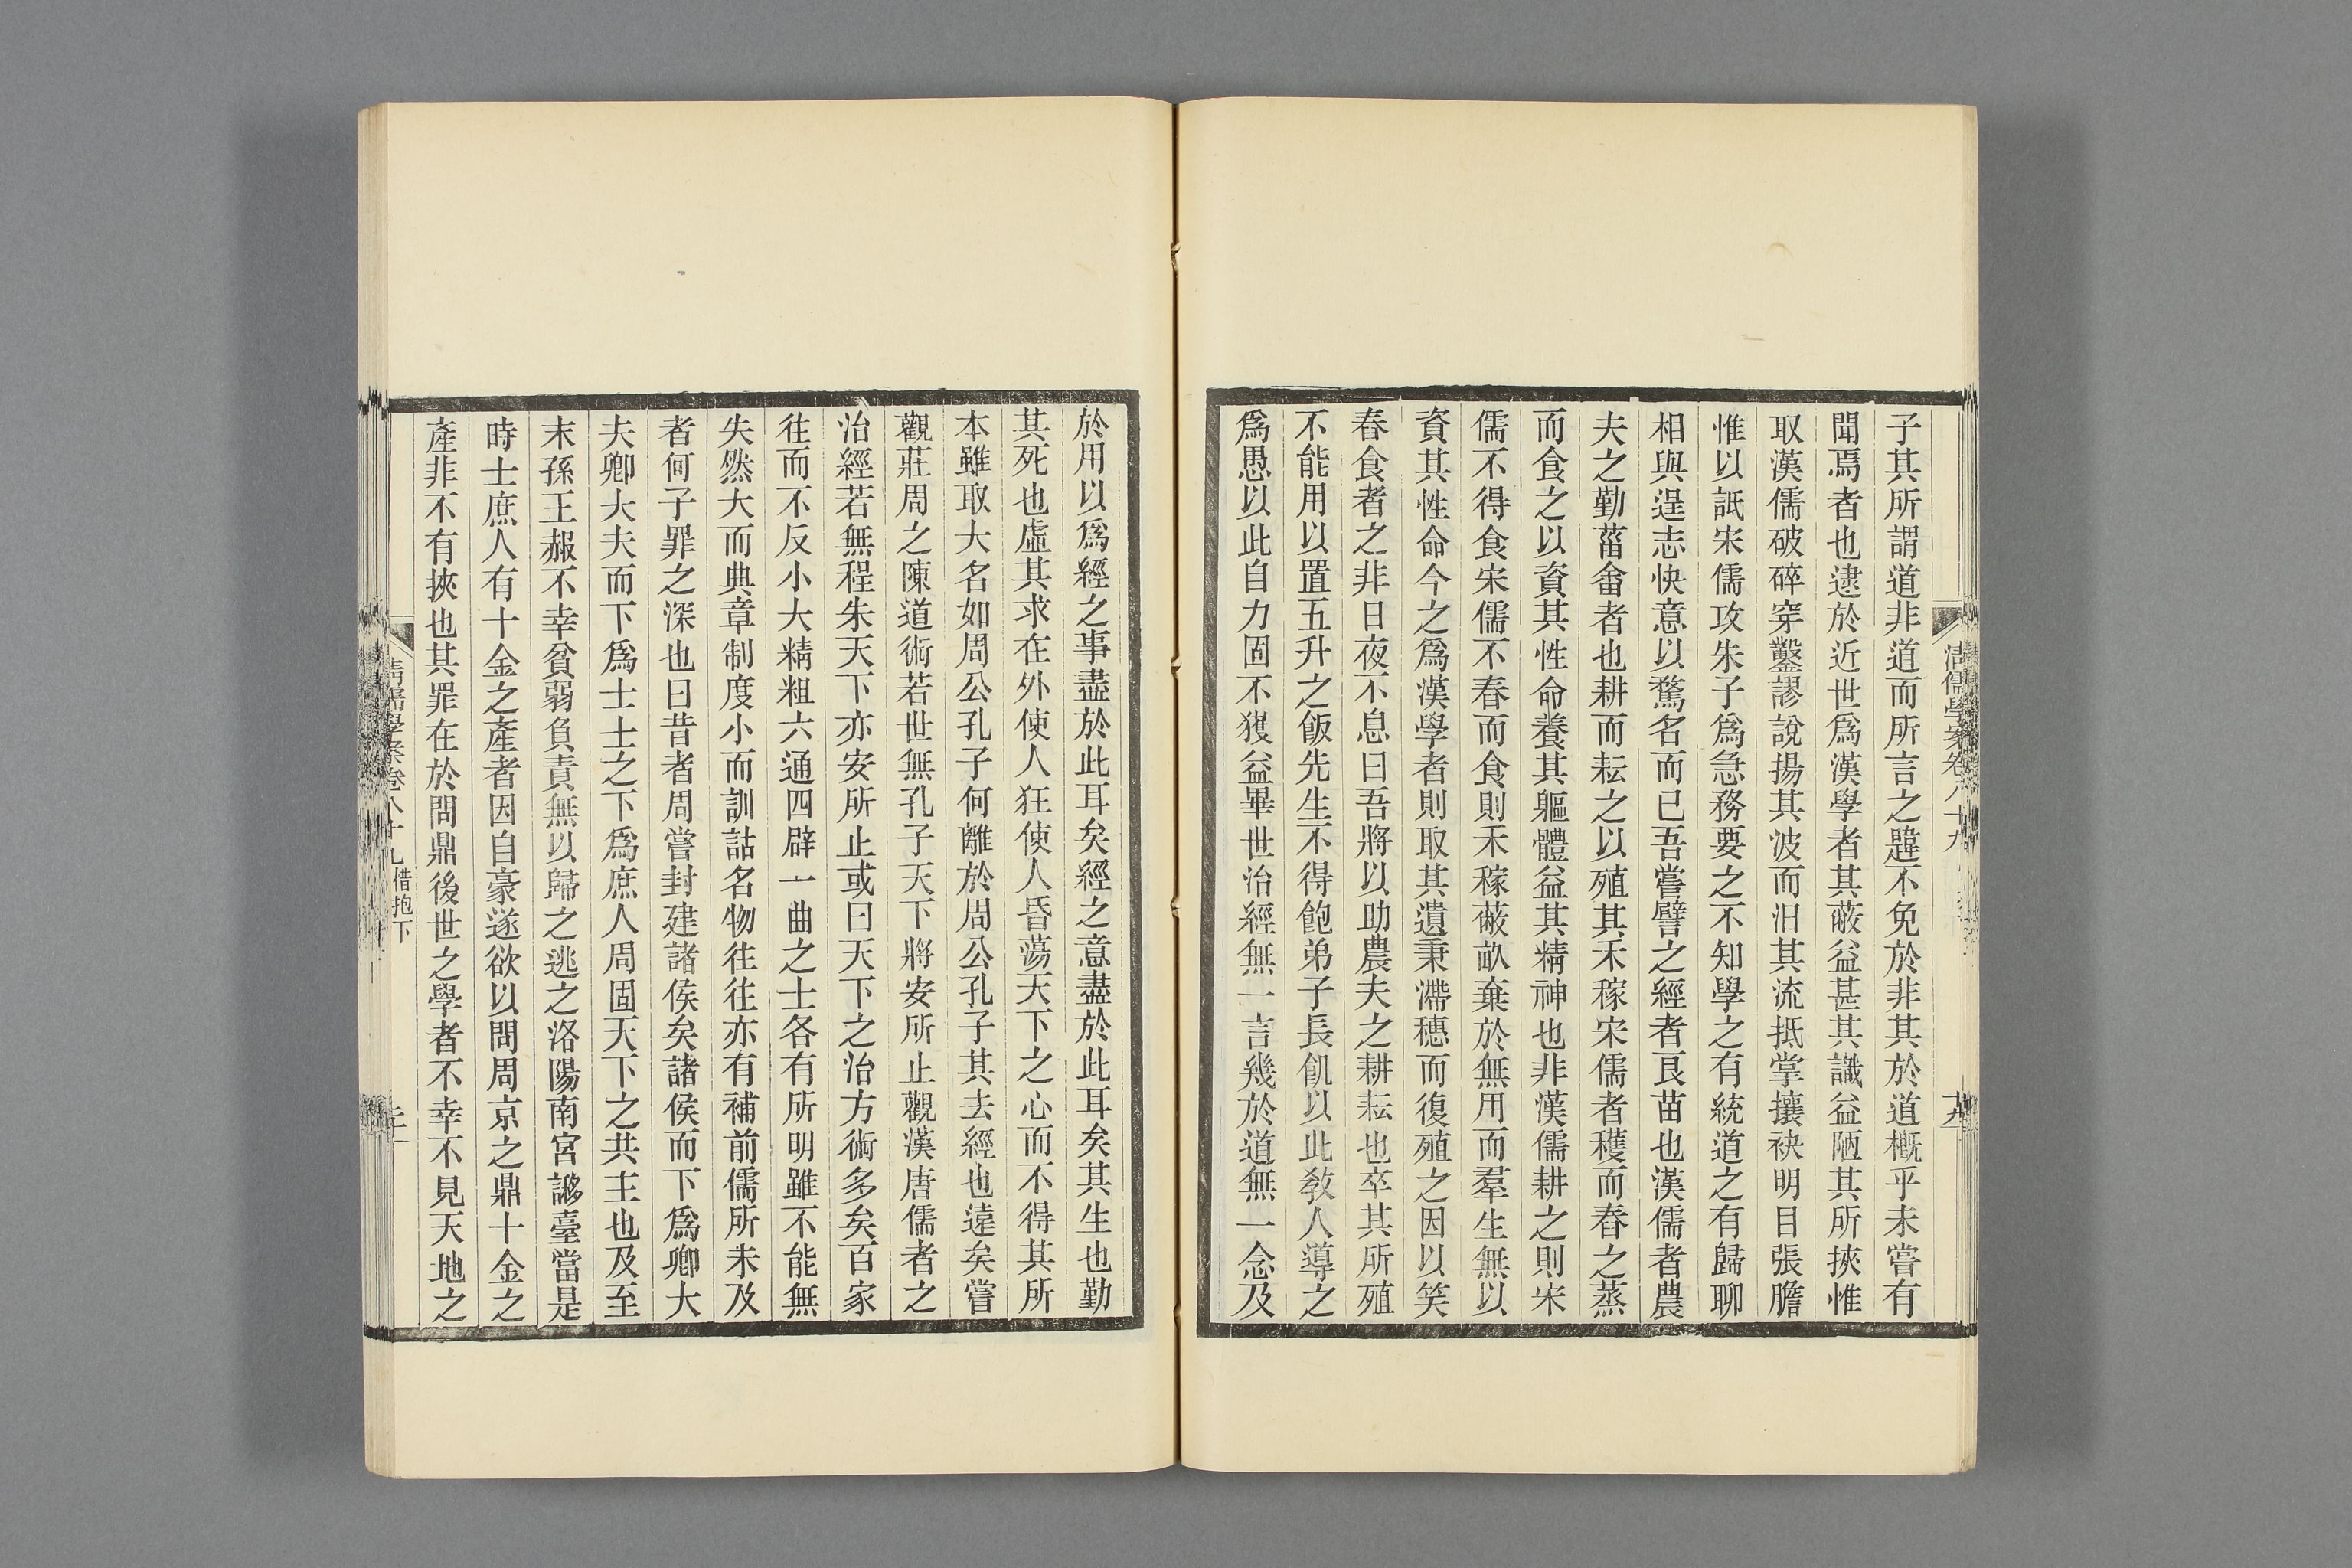 子其所謂道非道而所言之韙不免於非其於道槪乎未嘗有
聞焉者也逮於近世爲漢學者其蔽益甚其識益陋其所挾惟
取漢儒破碎穿鑿謬說揚其波而汩其流抵掌攘袂明目張膽
惟以詆宋儒攻朱子爲急務要之不知學之有統道之有歸聊
相與逞志快意以騖名而已吾嘗譬之經者良苗也漢儒者農
夫之勤菑畬者也耕而耘之以殖其禾稼宋儒者穫而舂之蒸
而食之以資其性命養其軀體益其精神也非漢儒耕之則宋
儒不得食宋儒不舂而食則禾稼蔽畝棄於無用而羣生無以
資其性命今之爲漢學者則取其遺秉滯穗而復殖之因以笑
舂食者之非日夜不息曰吾將以助農夫之耕耘也卒其所殖
不能用以置五升之飯先生不得飽弟子長飢以此敎人導之
爲愚以此自力固不獲益畢世治經無一言幾於道無一念及
於用以爲經之事盡於此耳矣經之意盡於此耳矣其生也勤
其死也虛其求在外使人狂使人昏蕩天下之心而不得其所
本雖取大名如周公孔子何離於周公孔子其去經也遠矣嘗
觀莊周之陳道術若世無孔子天下將安所止觀漢唐儒者之
治經若無程朱天下亦安所止或曰天下之治方術多矣百家
往而不反小大精粗六通四辟一曲之士各有所明雖不能無
失然大而典章制度小而訓詁名物往往亦有補前儒所未及
者何子罪之深也曰昔者周嘗封建諸侯矣諸侯而下爲卿大
夫卿大夫而下爲士士之下爲庶人周固天下之共主也及至
末孫王赧不幸貧弱負責無以歸之逃之洛陽南宮謻臺當是
時士庶人有十金之產者因自豪遂欲以問周京之鼎十金之
產非不有挾也其罪在於問鼎後世之學者不幸不見天地之
清儒學案卷八十九 惜抱下